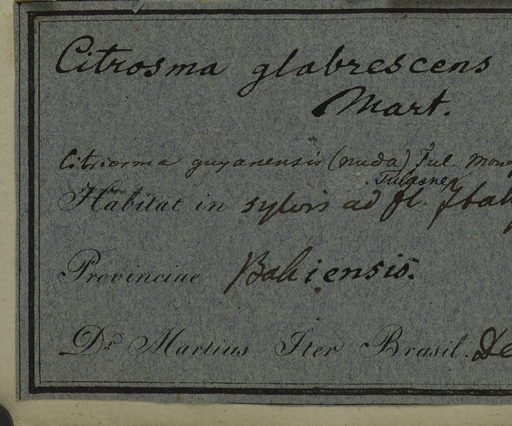 Citrosma glabrescens
Mart.
Citriosma guyanensis (nuda) Tul. Mono
Tulasnen
Habitat in sylvis ad fl. Itah
Provinciae Bahiensis.
Dr. Martius Iter Brasil. De